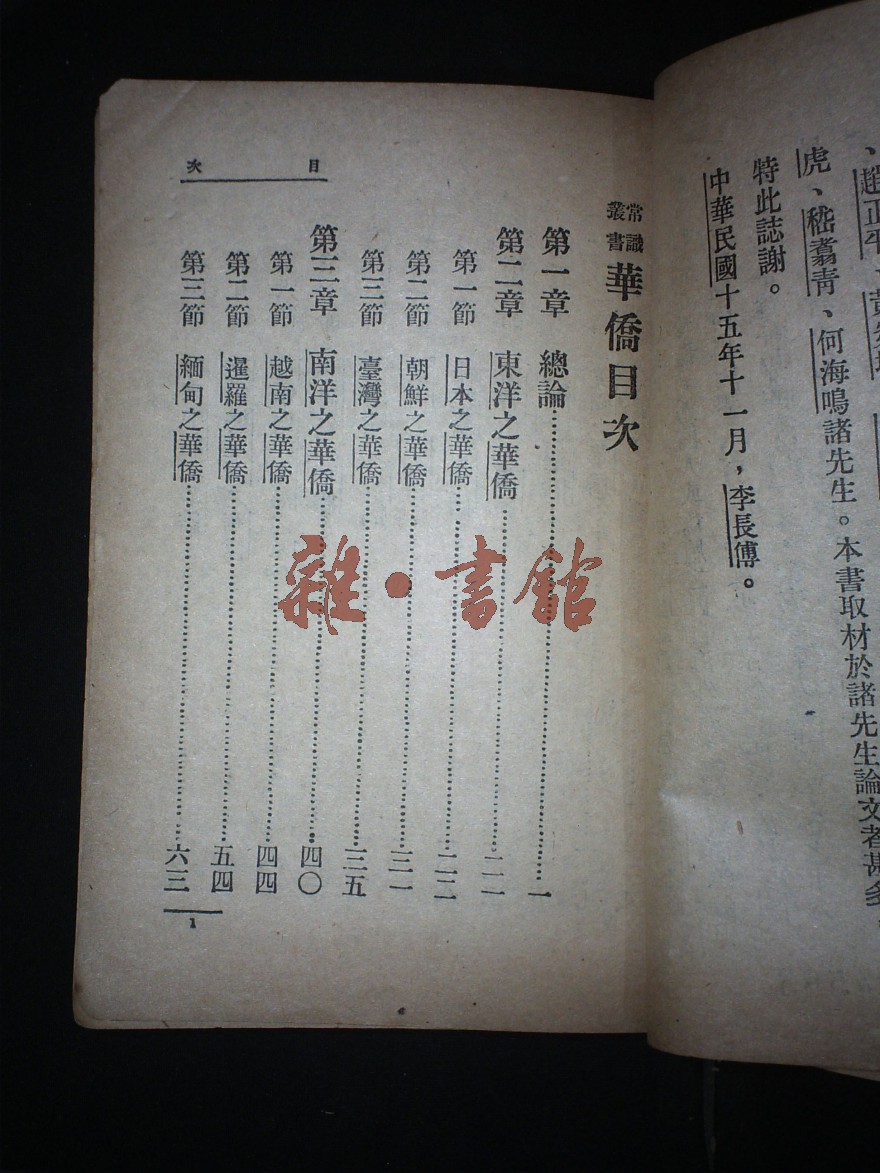 、趙正平、黃
虎、嵇翥青、何海鳴諸先生。本書取材於諸先生論文者甚多
特此誌謝。
中華民國十五年十一月，李長傅。
目次
常識叢書 華僑目次
第一章 總論……一
第二章 東洋之華僑……二一
第一節 日本之華僑……二二
第二節 朝鮮之華僑……三一
第三節 臺灣之華僑……三五
第三章 南洋之華僑……四〇
第一節 越南之華僑……四四
第二節 暹羅之華僑……五四
第三節 緬甸之華僑……六三
1
雜·書館